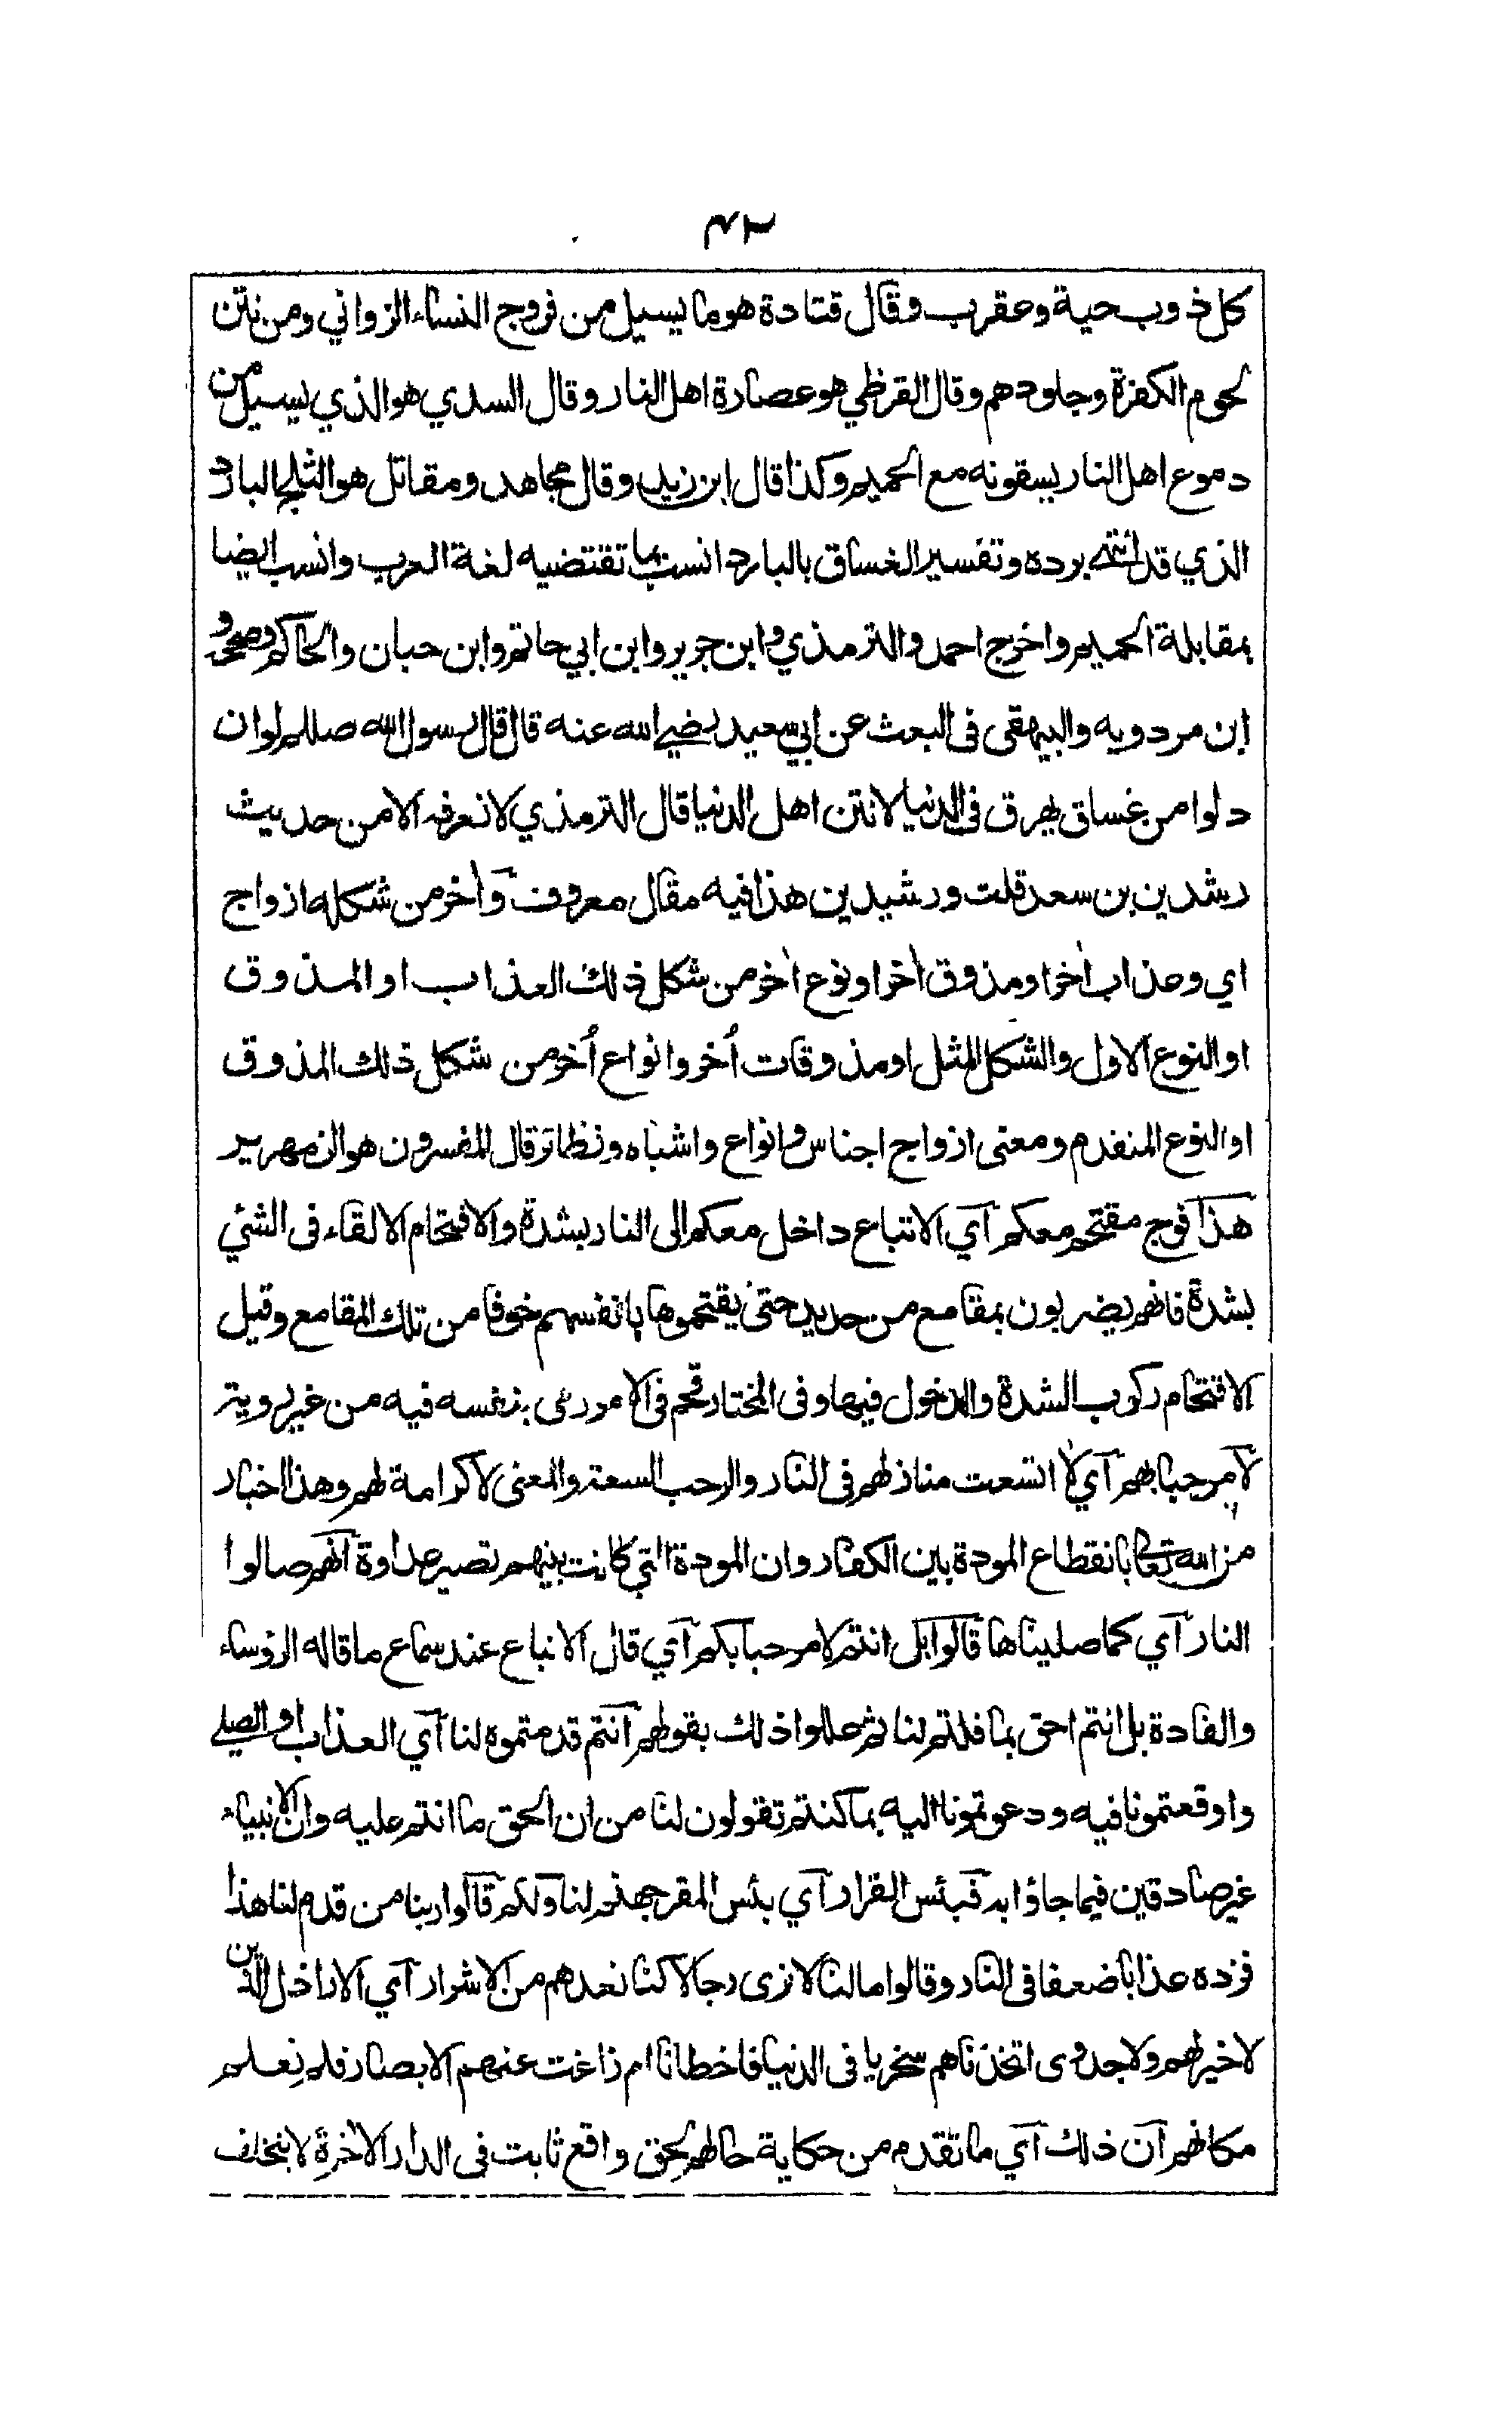 ٤٢
كل ذوب حية وعقرب وقال قتادة هو ما يسيل من فروج النساء الزواني ومن نتن
لحوم الكفرة وجلودهم وقال القرظي هو عصارة اهل النار وقال السدي هو الذي يسيل من
دموع اهل النار يسقونه مع الحميم وكذا قال ابن زيد وقال مجاهد ومقاتل هو الثلج البارد
الذي قد انتهى برده وتفسير الغساق بالبارد انسب بما تقتضيه لغة العرب وانسب ايضا
بمقابلة الحميم واخرج احمد والترمذي وابن جرير وابن ابي حاتم وابن حبان والحاكم وصححه و
ابن مردويه والبيهقي فى البعث عن ابي سعيد رضي الله عنه قال قال رسول الله صللم لو ان
دلوا من غساق يهرق فى الدنيا لانتن اهل الدنيا قال الترمذي لا نعرفه الا من حديث
رشدين بن سعد قلت ورشيدين هذا فيه مقال معروف وأخر من شكله ازواج
اي وعذاب أخر او مذوق أخر او نوع أخر من شكل ذلك العذاب او المذوق
او النوع الاول والشكل المثل او مذوقات أُخر وانواع أُخر من شكل ذلك المذوق
او النوع المتقدم ومعنى ازواج اجناس وانواع واشباه ونظائر قال المفسرون هو الزمهرير
هذا فوج مقتحم معكم اي الاتباع داخل معكم الى النار بشدة والاقتحام الالقاء فى الشئ
بشدة فانهم يضربون بمقامع من حديد حتى يقتحموها بانفسهم خوفا من تلك المقامع وقيل
الاقتحام ركوب الشدة والدخول فيها وفى المختار قحم فى الامر رمى بنفسه فيه من غير روية
لا مرحبا بهم اي لا اتسعت منازلهم فى النار والرحب السعة والمعنى لا كرامة لهم وهذا اخبار
من الله تعالى بانقطاع المودة بين الكفار وان المودة التي كانت بينهم تصير عداوة انهم صالوا
النار اي كما صليناها قالوا بل انتم لا مرحبا بكم اي قال الاتباع عند سماع ما قاله الرؤساء
والقادة بل انتم احق بما قلتم لنا ثم عللوا ذلك بقولهم انتم قدمتموه لنا اي العذاب او الصلي
واوقعتمونا فيه ودعوتمونا اليه بما كنتم تقولون لنا من ان الحق ما انتم عليه وان الانبياء
غير صادقين فيما جاؤا به فبئس القرار اي بئس المقر جهنم لنا ولكم قالوا ربنا من قدم لنا هذا
فزده عذابا ضعفا فى النار وقالوا ما لنا لا نرى رجالا كنا نعدهم من الاشرار اي الاراذل الذين
لا خير لهم ولا جدوى اتخذناهم سخريا فى الدنيا فاخطانا ام زاغت عنهم الابصار فلم نعلم
مكانهم ان ذلك اي ما تقدم من حكاية حالهم لحق واقع ثابت فى الدار الاخرة لا يتخلف